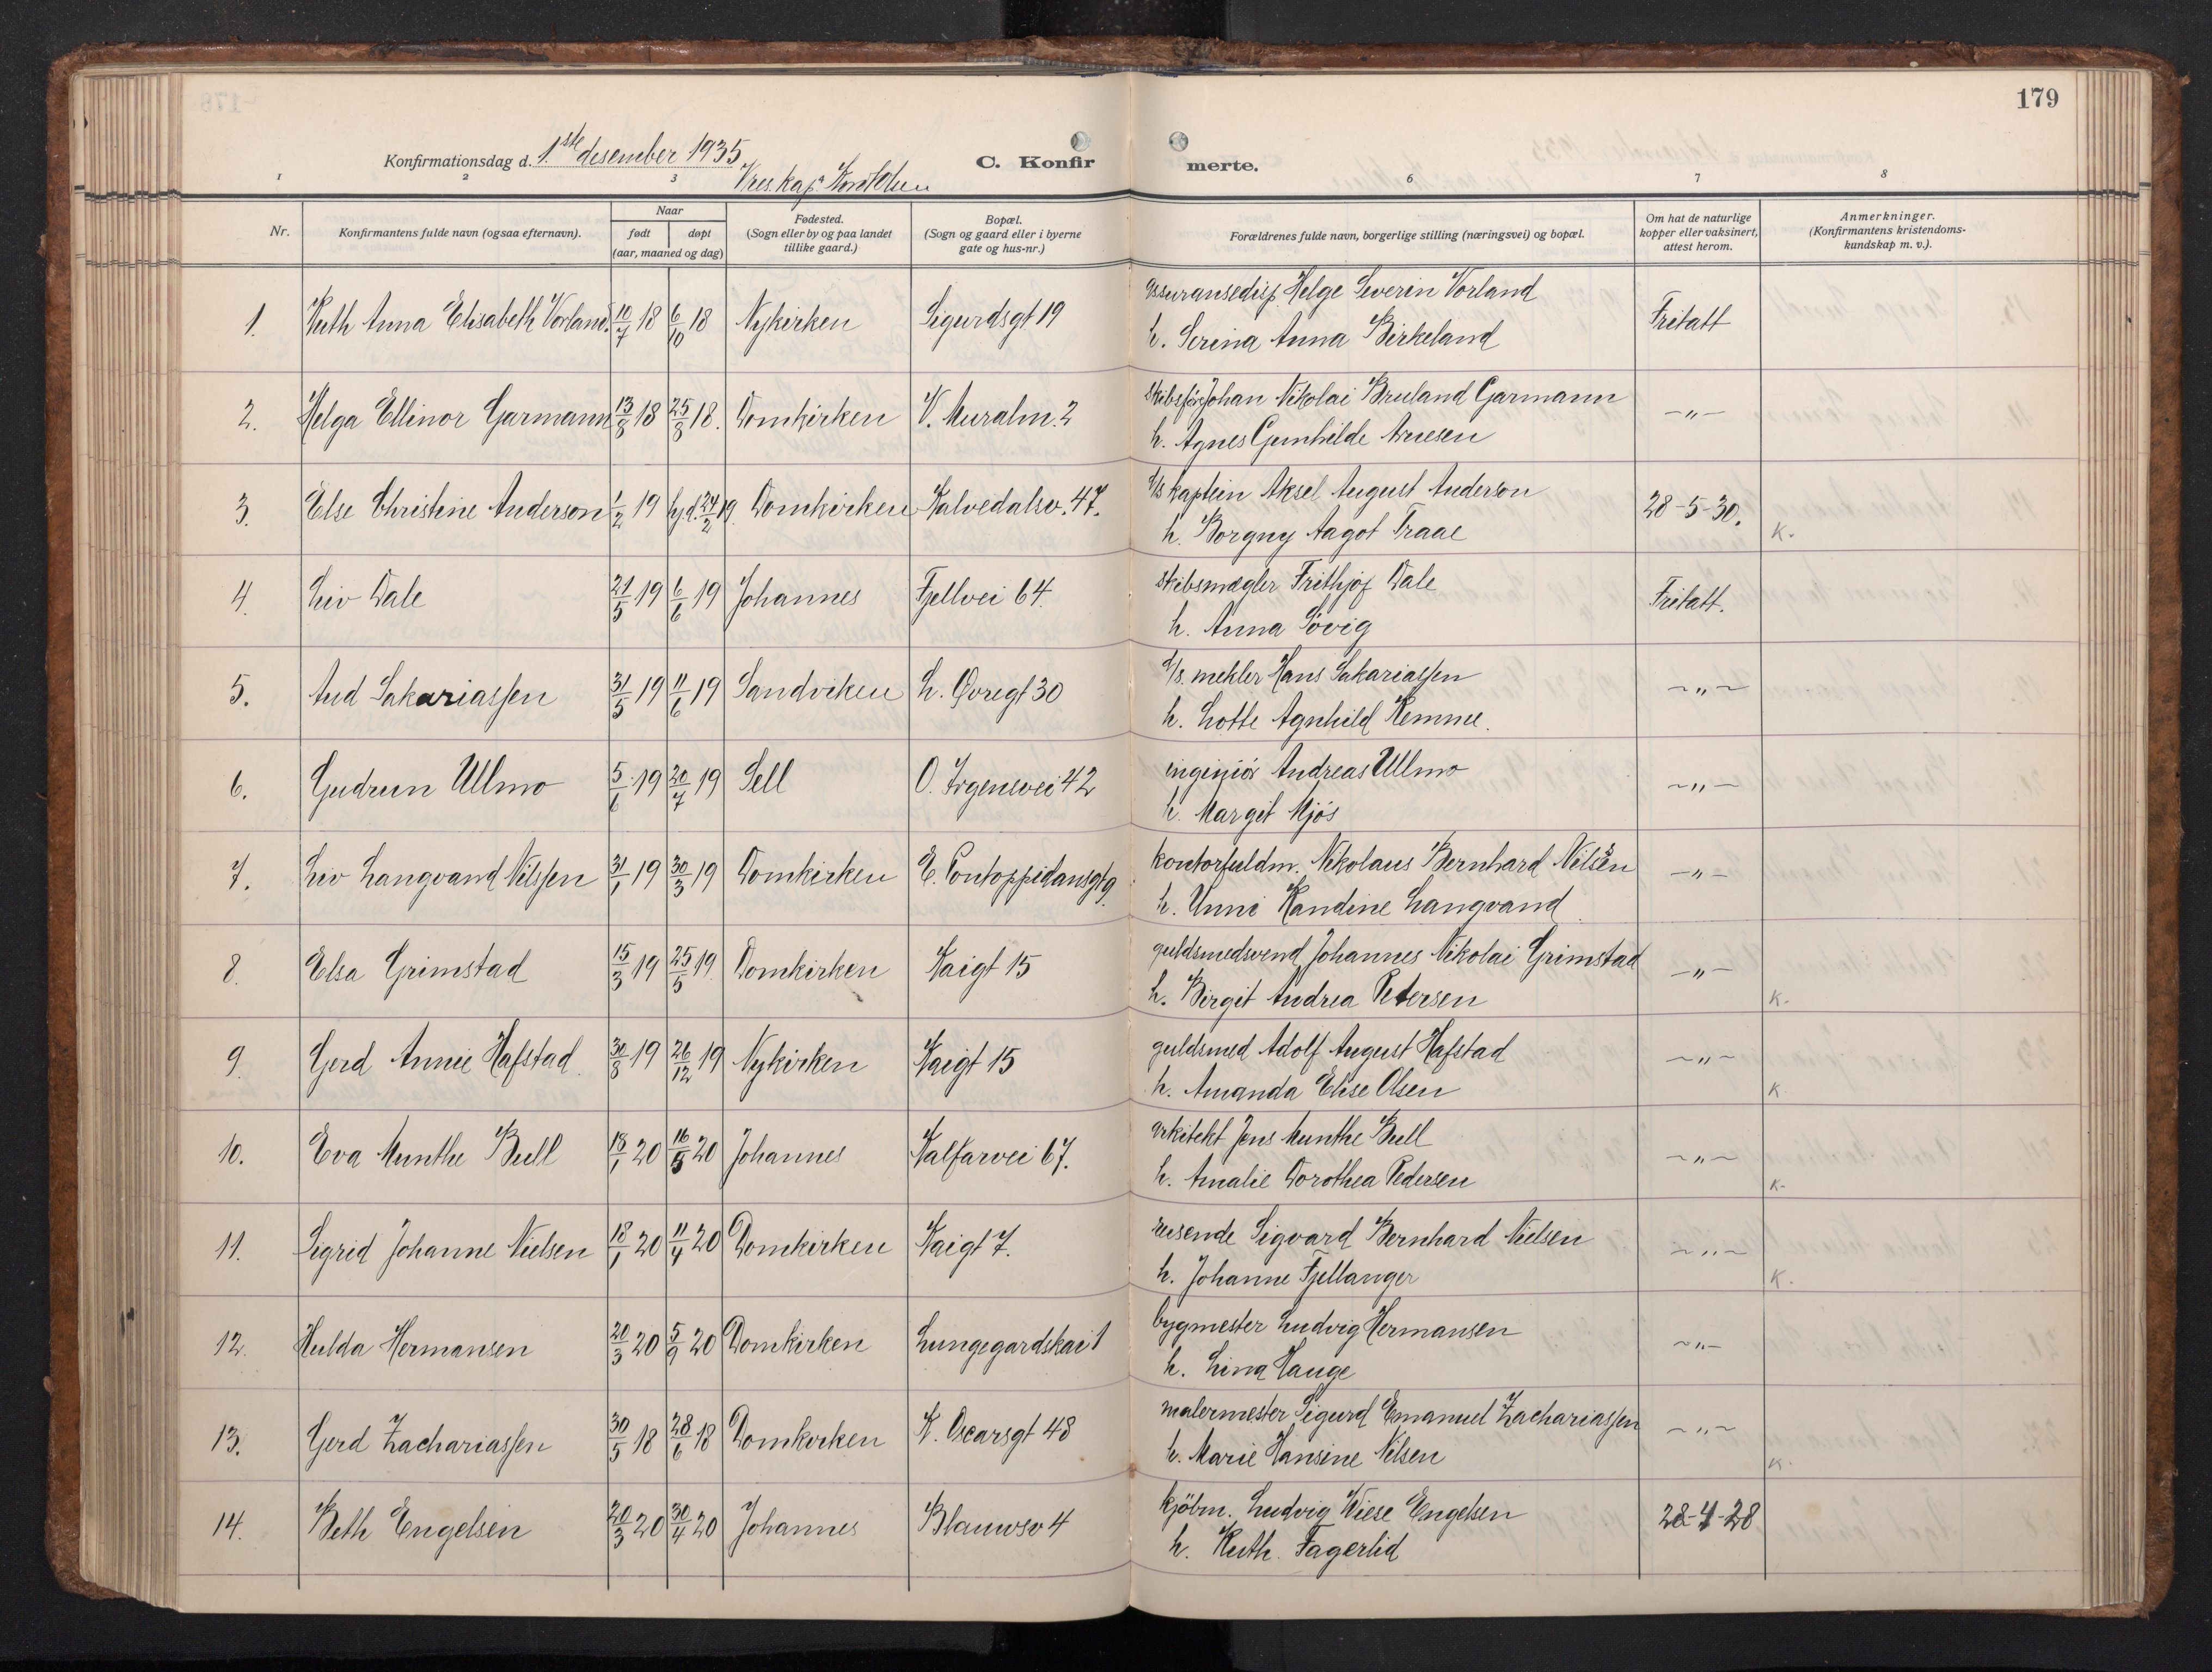 179
Konfirmationsdag d. 1.ste desember 1935
C. Konfir merte.
Vres. kap.
1 2 3 6 7 8
Nr. Konfirmantens fulde navn (ogsaa efternavn). Naar født døpt (aar, maaned og dag) Fødested. (Sogn eller by og paa landet tillike gaard.) Bopæl. (Sogn og gaard eller i byerne gate og hus-nr.) Forældrenes fulde navn, borgerlige stilling (næringsvei) og bopæl. Om hat de naturlige kopper eller vaksinert, attest herom. Anmerkninger. (Konfirmantens kristendoms-kundskap m. v.).
1. Ruth Anna Elisabeth Vorland. 10/7 18 6/10 18 Nykirken Sigurdsgt 19 assuransedisp. Helge Severin Vorland Fritatt
h. Serina Anna Birkeland
2. Helga Ellinor Garmann 13/8 18 25/8 18. Domkirken V. Muralm. 2 skibsför. Johan Nikolai Bruland Garmann —"—
h. Agnes Gunhilde Arnesen
3. Else Christine Anderson 1/2 19 hj.d. 24/2 19. Domkirken Kalvedalsv. 47. d/s kaptein Aksel August Anderson 28-5-30.
h. Borgny Aagot Traae K.
4. Liv Dale 21/5 19 6/6 19 Johannes Fjellvei 64. skibsmægler Frithjof Dale Fritatt.
h. Anna Søvig
5. Aud Sakariassen 31/5 19 11/6 19 Sandviken L. Øvregt 30 d/s. mekler Hans Sakariassen —"—
h. Lotte Agnhild Remme.
6. Gudrun Ullmo 5/6 19 20/7 19 Sell O. Irgensvei 42 ingeniör Andreas Ullmo —"—
h. Margit Mjös
7. Liv Langvand Nilssen 31/1 19 30/3 19 Domkirken E. Pontoppidansgt 9. kontorfuldm. Nikolaus Bernhard Nilsen —"—
h. Unni Randine Langvand
8. Elsa Grimstad 15/3 19 25/5 19 Domkirken Kaigt 15 guldsmedsvend Johannes Nikolai Grimstad —"—
h. Birgit Andrea Petersen K.
9. Gerd Annie Hafstad. 30/8 19 26/12 19 Nykirken Kaigt 15 guldsmed Adolf August Hafstad —"—
h. Amanda Elise Olsen K
10. Eva Munthe Bull 18/1 20 16/5 20 Johannes Kalfarvei 67. arkitekt Jens Munthe Bull —"—
h. Amalie Dorothea Pedersen K.
11. Sigrid Johanne Nielsen 18/1 20 11/4 20 Domkirken Kaigt 7. reisende Sigvard Bernhard Nielsen —"—
h. Johanne Fjellanger K.
12. Hulda Hermansen 20/3 20 5/9 20 Domkirken Lungegardskai 1 bygmester Ludvig Hermansen —"—
h. Lina Hauge
13. Gerd Zachariassen 30/5 18 28/6 18 Domkirken K. Oscarsgt 48 malermester Sigurd Emanuel Zachariassen —"—
h. Marie Hansine Nilsen K.
14. Beth Engelsen 20/3 20 30/4 20 Johannes Blauwsv 4 kjöbm. Ludvig Wiese Engelsen 28-4-28
h. Ruth Fagerlid